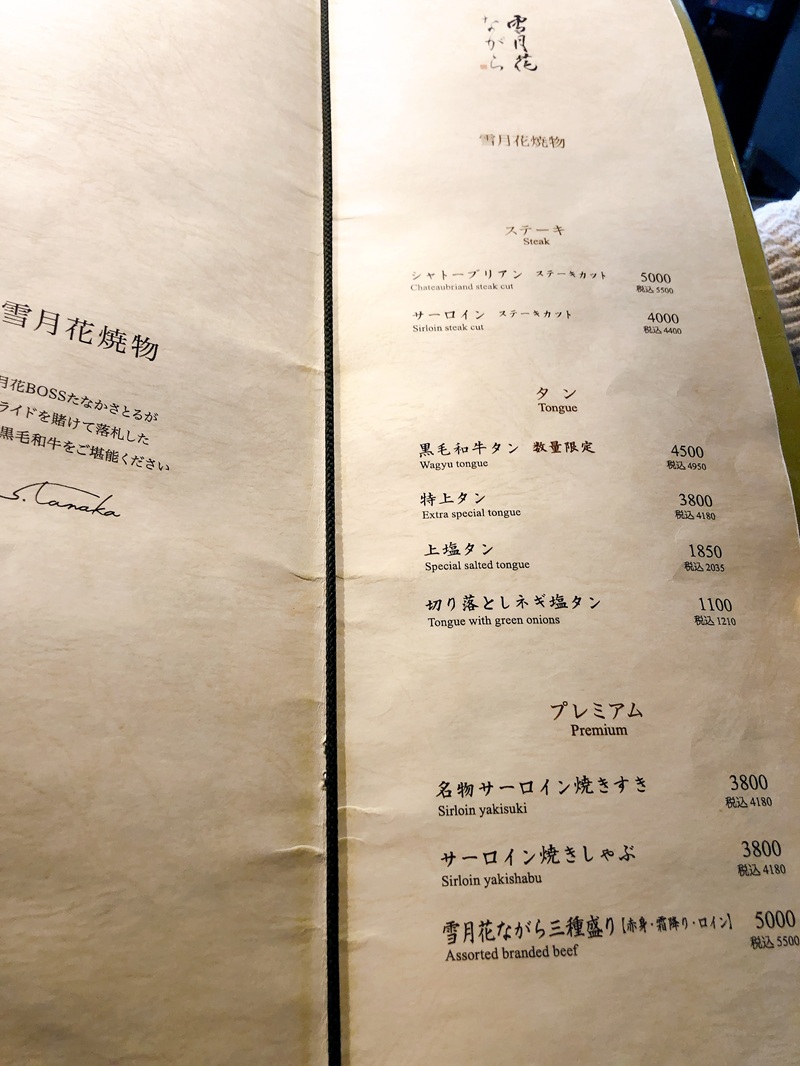 雪月花焼物
月花BOSSたなかさとるが
ライドを賭けて落札した
黒毛和牛をご堪能ください
S. Tanaka
雪月花
ながら
雪月花焼物
ステーキ
Steak
シャトーブリアン ステーキカット 5000
Chateaubriand steak cut 税込 5500
サーロイン ステーキカット 4000
Sirloin steak cut 税込 4400
タン
Tongue
黒毛和牛タン 数量限定 4500
Wagyu tongue 税込 4950
特上タン 3800
Extra special tongue 税込 4180
上塩タン 1850
Special salted tongue 税込 2035
切り落としネギ塩タン 1100
Tongue with green onions 税込 1210
プレミアム
Premium
名物サーロイン焼きすき 3800
Sirloin yakisuki 税込 4180
サーロイン焼きしゃぶ 3800
Sirloin yakishabu 税込 4180
雪月花ながら三種盛り【赤身・霜降り・ロイン】 5000
Assorted branded beef 税込 5500